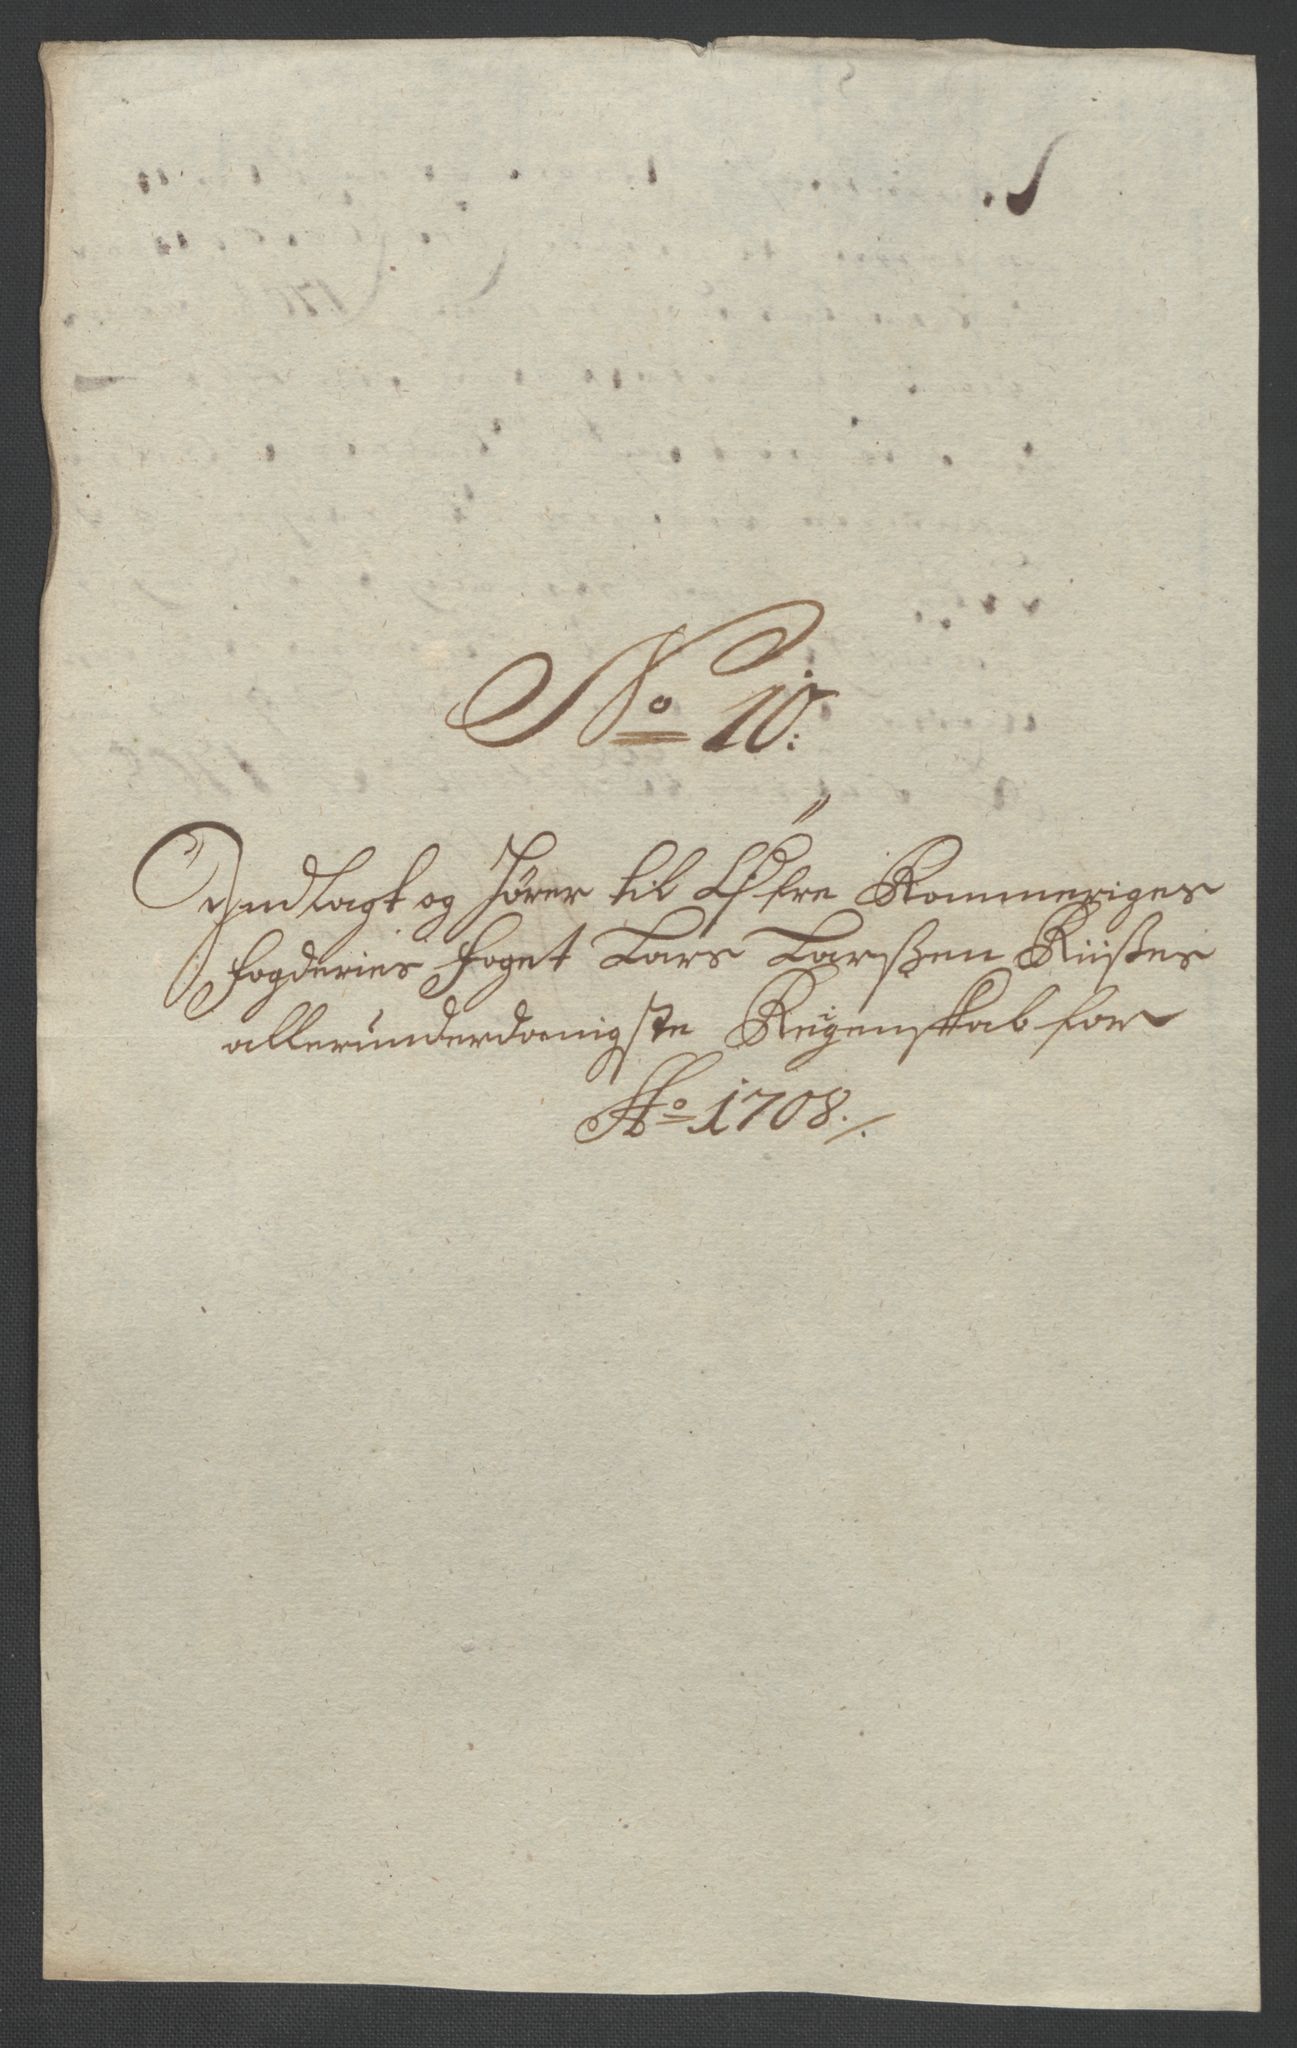 No 10:
Indlagt og hører til Øfre Rommeriges
fogderies foget Lars Larßen Riißes
allerunderdanigste Regenskab for
Ao 1708.